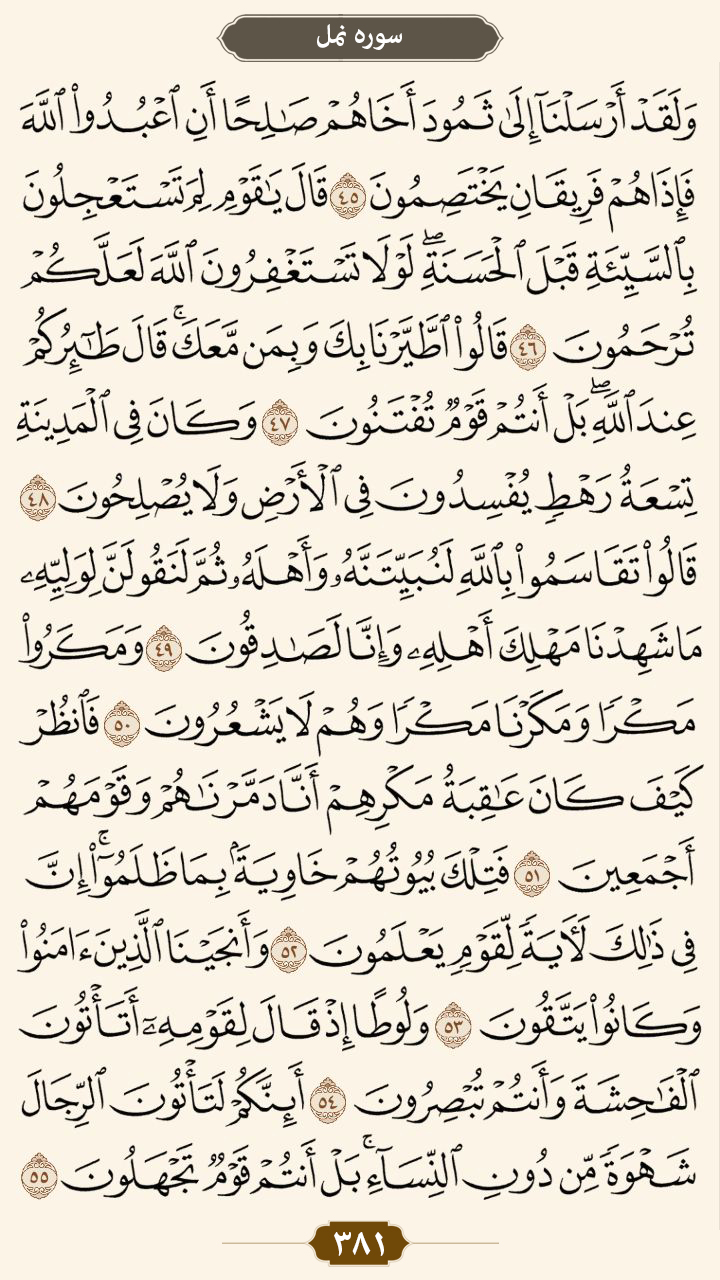 سوره نمل
وَلَقَدْ أَرْسَلْنَآ إِلَىٰ ثَمُودَ أَخَاهُمْ صَـٰلِحًا أَنِ ٱعْبُدُوا۟ ٱللَّهَ
فَإِذَا هُمْ فَرِيقَانِ يَخْتَصِمُونَ ٤٥ قَالَ يَـٰقَوْمِ لِمَ تَسْتَعْجِلُونَ
بِٱلسَّيِّئَةِ قَبْلَ ٱلْحَسَنَةِ ۖ لَوْلَا تَسْتَغْفِرُونَ ٱللَّهَ لَعَلَّكُمْ
تُرْحَمُونَ ٤٦ قَالُوا۟ ٱطَّيَّرْنَا بِكَ وَبِمَن مَّعَكَ ۚ قَالَ طَـٰٓئِرُكُمْ
عِندَ ٱللَّهِ ۖ بَلْ أَنتُمْ قَوْمٌ تُفْتَنُونَ ٤٧ وَكَانَ فِى ٱلْمَدِينَةِ
تِسْعَةُ رَهْطٍ يُفْسِدُونَ فِى ٱلْأَرْضِ وَلَا يُصْلِحُونَ ٤٨
قَالُوا۟ تَقَاسَمُوا۟ بِٱللَّهِ لَنُبَيِّتَنَّهُۥ وَأَهْلَهُۥ ثُمَّ لَنَقُولَنَّ لِوَلِيِّهِۦ
مَا شَهِدْنَا مَهْلِكَ أَهْلِهِۦ وَإِنَّا لَصَـٰدِقُونَ ٤٩ وَمَكَرُوا۟
مَكْرًا وَمَكَرْنَا مَكْرًا وَهُمْ لَا يَشْعُرُونَ ٥٠ فَٱنظُرْ
كَيْفَ كَانَ عَـٰقِبَةُ مَكْرِهِمْ أَنَّا دَمَّرْنَـٰهُمْ وَقَوْمَهُمْ
أَجْمَعِينَ ٥١ فَتِلْكَ بُيُوتُهُمْ خَاوِيَةًۢ بِمَا ظَلَمُوٓا۟ ۗ إِنَّ
فِى ذَٰلِكَ لَـَٔايَةً لِّقَوْمٍ يَعْلَمُونَ ٥٢ وَأَنجَيْنَا ٱلَّذِينَ ءَامَنُوا۟
وَكَانُوا۟ يَتَّقُونَ ٥٣ وَلُوطًا إِذْ قَالَ لِقَوْمِهِۦٓ أَتَأْتُونَ
ٱلْفَـٰحِشَةَ وَأَنتُمْ تُبْصِرُونَ ٥٤ أَئِنَّكُمْ لَتَأْتُونَ ٱلرِّجَالَ
شَهْوَةً مِّن دُونِ ٱلنِّسَآءِ ۚ بَلْ أَنتُمْ قَوْمٌ تَجْهَلُونَ ٥٥
٣٨١